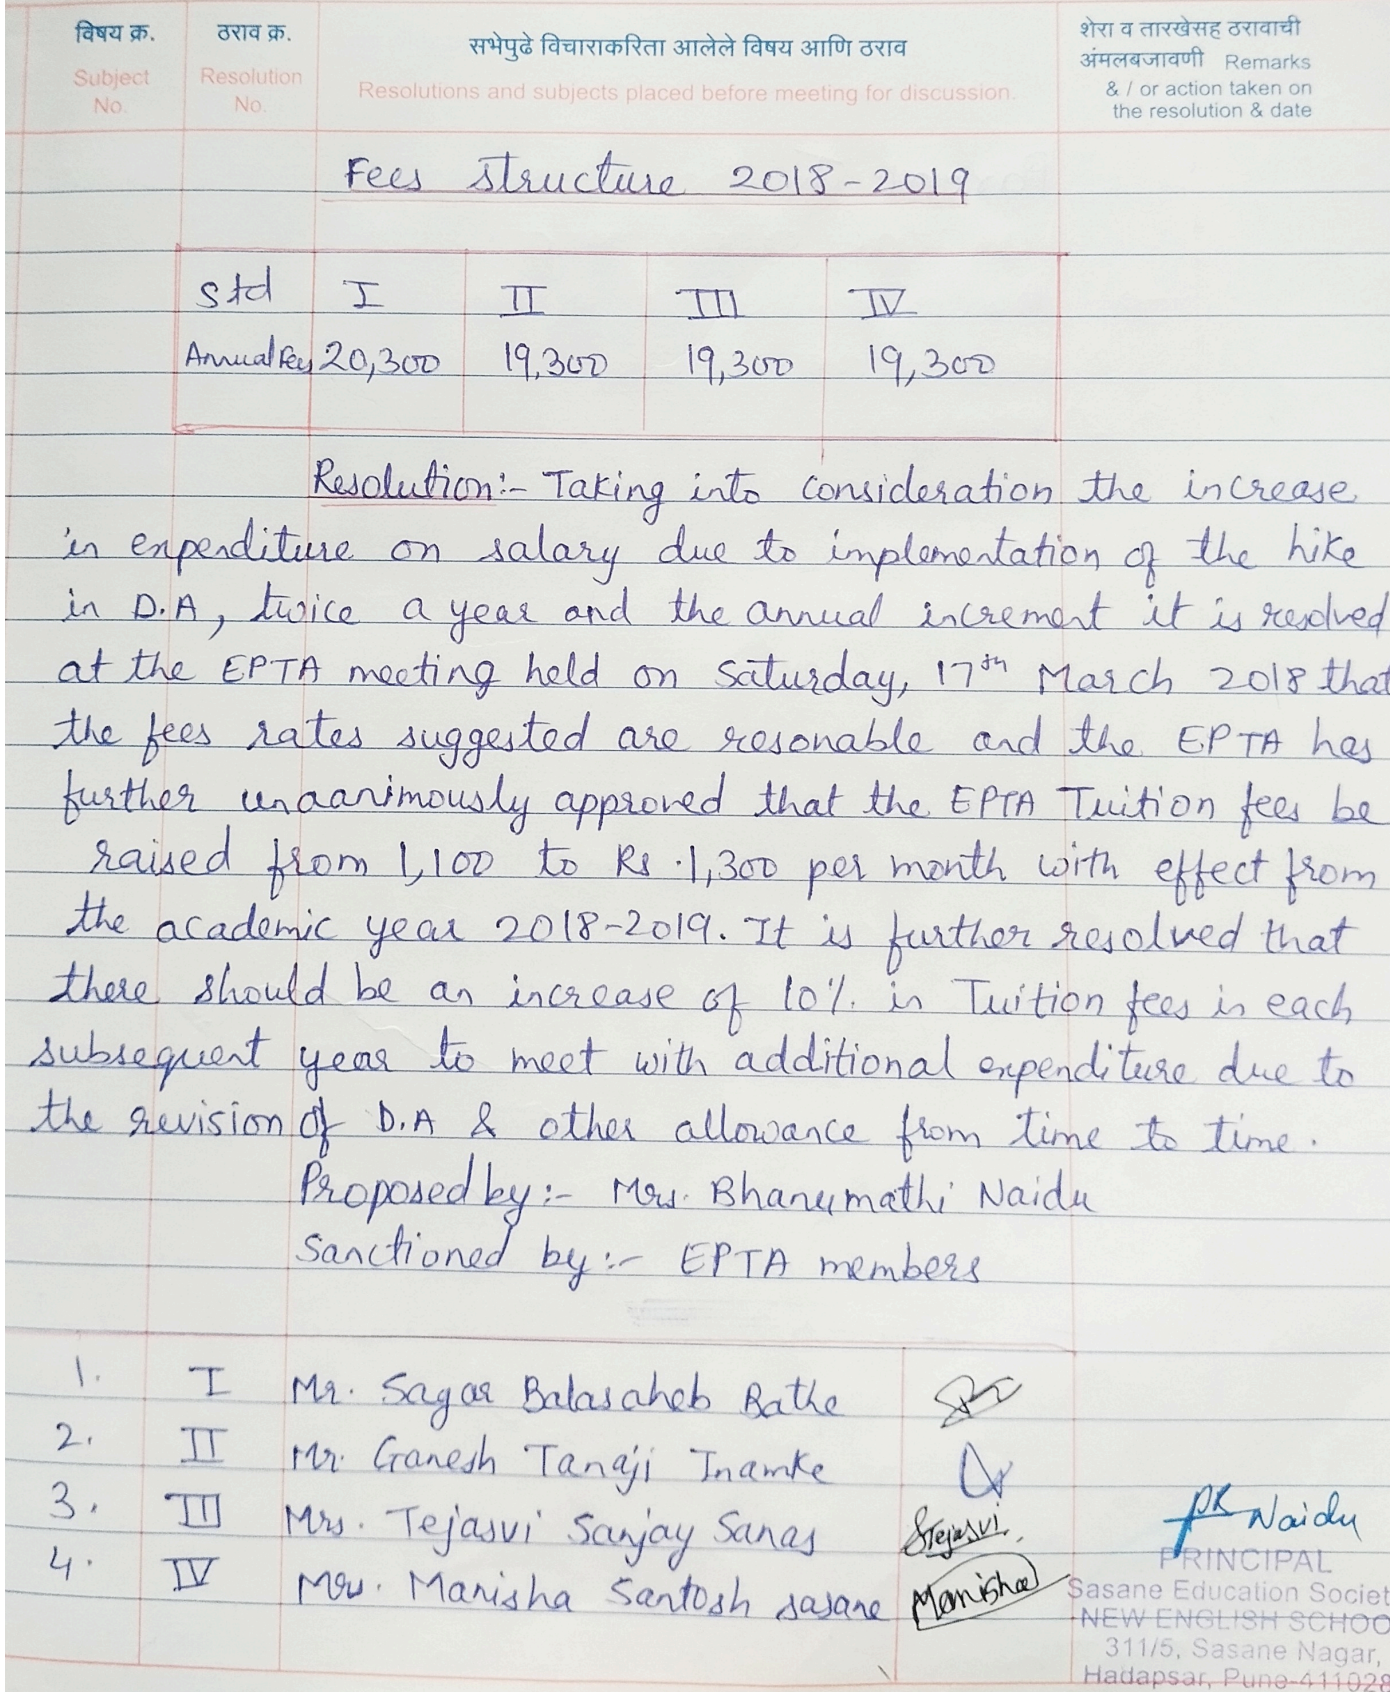 विषय क्र.
Subject
No.
ठराव क्र.
Resolution
No.
सभेपुढे विचाराकरिता आलेले विषय आणि ठराव
Resolutions and subjects placed before meeting for discussion.
शेरा व तारखेसह ठरावाची
अंमलबजावणी Remarks
& / or action taken on
the resolution & date
Fees structure 2018-2019
Std I II III IV
Annual Fees 20,300 19,300 19,300 19,300
Resolution:- Taking into consideration the increase
in expenditure on salary due to implementation of the hike
in D.A, twice a year and the annual increment it is resolved
at the EPTA meeting held on Saturday, 17th March 2018 that
the fees rates suggested are resonable and the EPTA has
further unaanimously approved that the EPTA Tuition fees be
raised from 1,100 to Rs.1,300 per month with effect from
the academic year 2018-2019. It is further resolved that
there should be an increase of 10% in Tuition fees in each
subsequent year to meet with additional expenditure due to
the revision of D.A & other allowance from time to time.
Proposed by:- Mrs. Bhanumathi Naidu
Sanctioned by:- EPTA members
1. I Mr. Sagar Balasaheb Bathe
2. II Mr. Ganesh Tanaji Inamke
3. III Mrs. Tejasvi Sanjay Sanas STejasvi.
4. IV Mrs. Manisha Santosh Sasane Manisha
Naidu
PRINCIPAL
Sasane Education Societ
NEW ENGLISH SCHOO
311/5, Sasane Nagar,
Hadapsar, Pune-411028